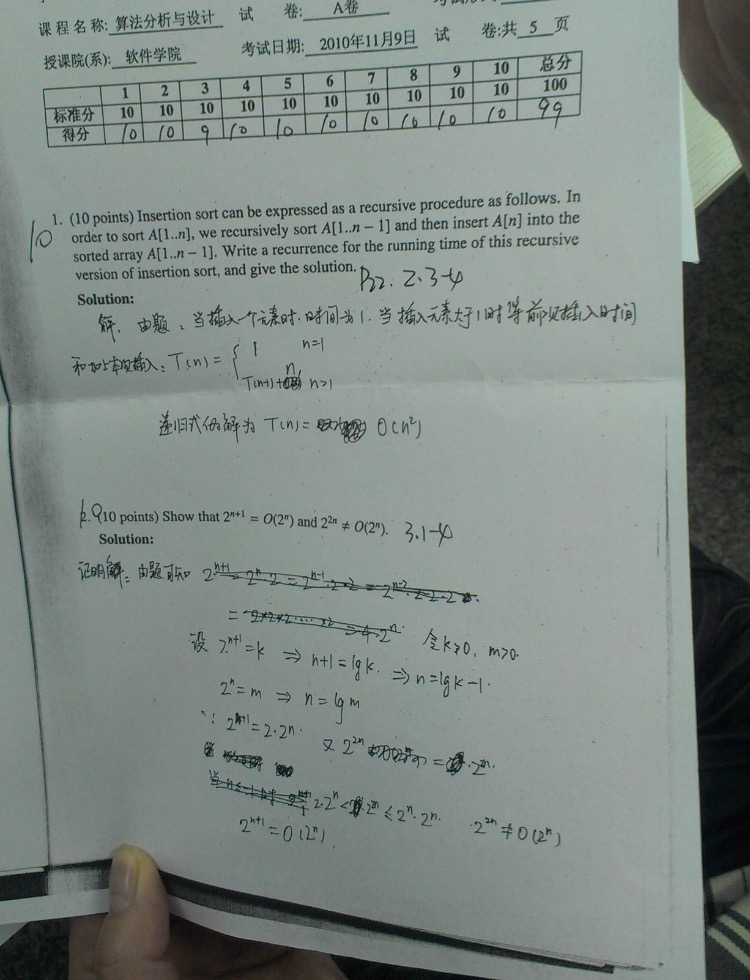 课程名称: 算法分析与设计 试 卷: A卷
授课院(系): 软件学院 考试日期: 2010年11月9日 试 卷:共 5 页
1 2 3 4 5 6 7 8 9 10 总分
标准分 10 10 10 10 10 10 10 10 10 10 100
得分 10 10 9 10 10 10 10 10 10 10 99
10
1. (10 points) Insertion sort can be expressed as a recursive procedure as follows. In
order to sort A[1..n], we recursively sort A[1..n − 1] and then insert A[n] into the
sorted array A[1..n − 1]. Write a recurrence for the running time of this recursive
version of insertion sort, and give the solution. P22. 2.3-4
Solution:
解. 由题: 当插入一个元素时.时间为1. 当插入元素大于1时等前次插入时间
和加上本次插入: T(n) = { 1 n=1
T(n-1)+n n>1
递归式的解为 T(n) = O(n²)
2. (10 points) Show that 2ⁿ⁺¹ = O(2ⁿ) and 2²ⁿ ≠ O(2ⁿ). 3.1-4
Solution:
证明解: 由题可知
令k>0, m>0.
设 2ⁿ⁺¹=k ⇒ n+1=lgk. ⇒ n=lgk-1.
2ⁿ=m ⇒ n=lgm
∵ 2ⁿ⁺¹=2·2ⁿ. 又 2²ⁿ = ·2ⁿ.
2·2ⁿ < ·2ⁿ ≤ 2ⁿ·2ⁿ. 2²ⁿ ≠ O(2ⁿ)
2ⁿ⁺¹=O(2ⁿ)